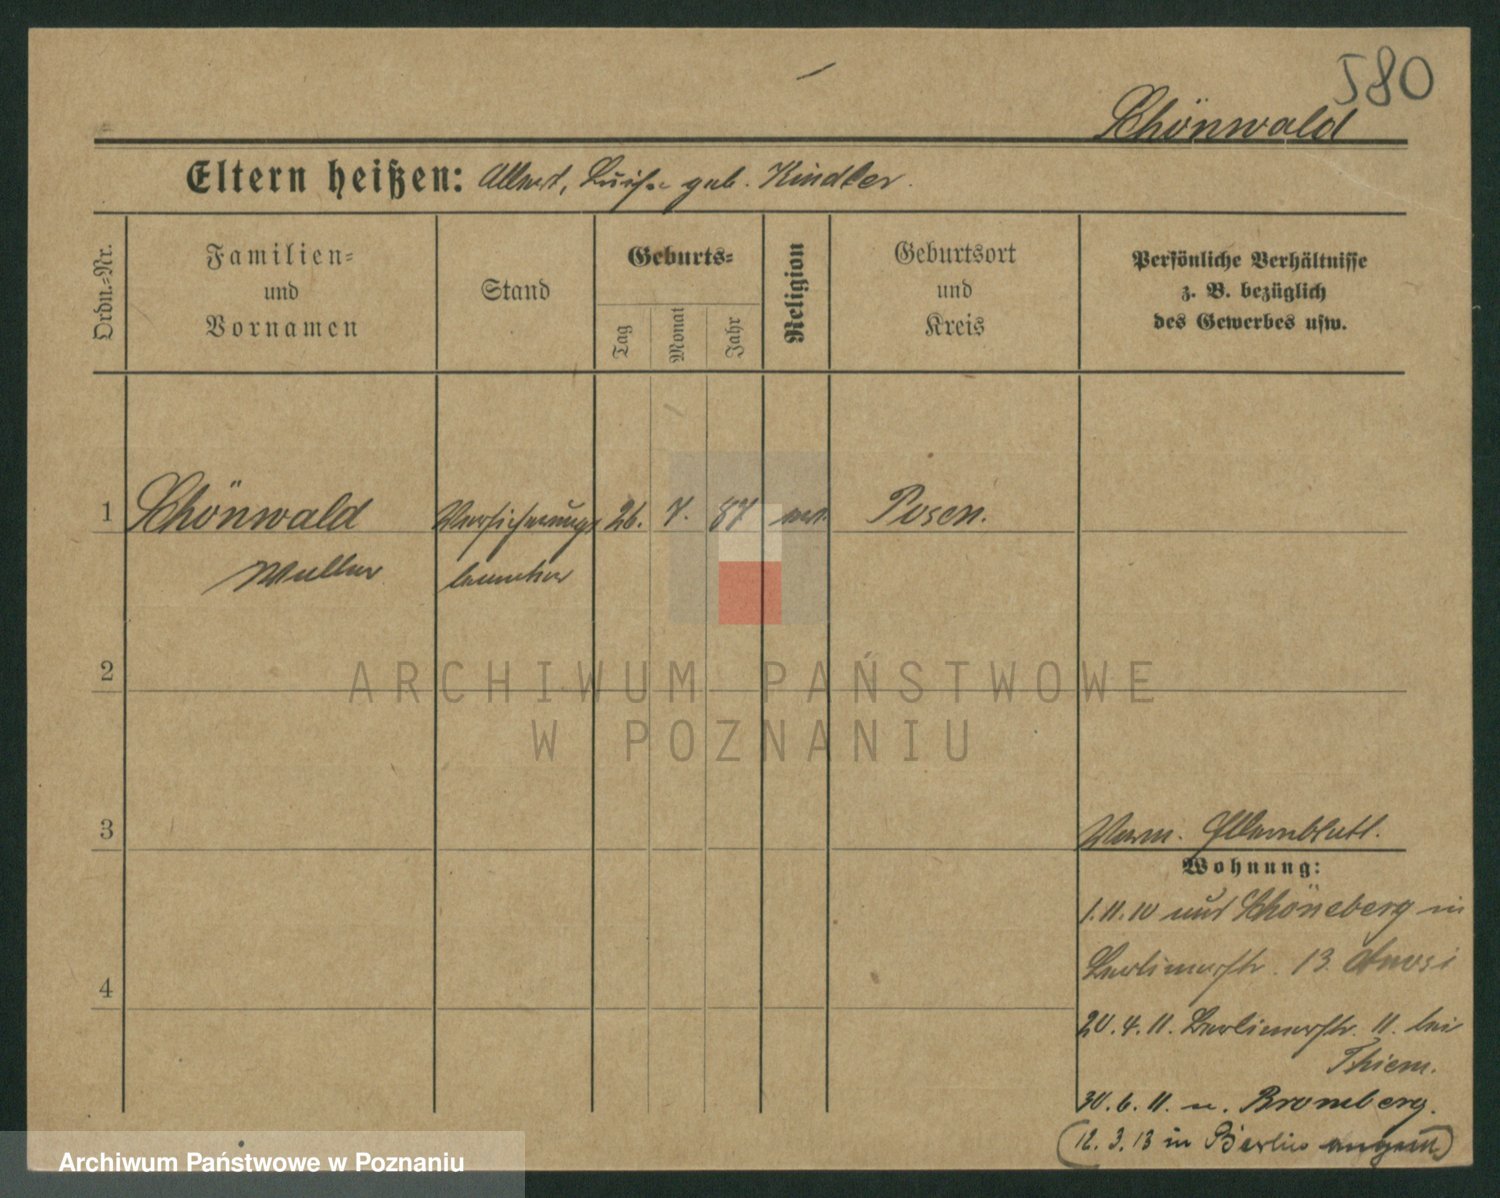 580
Schönwald
Eltern heißen: Albert, Luise geb. Kindler.
Ordn.-Nr.
Familien-
und
Vornamen
Stand
Geburts-
Tag
Monat
Jahr
Religion
Geburtsort
und
Kreis
Persönliche Verhältnisse
z. B. bezüglich
des Gewerbes usw.
1 Schönwald Versicherungs 26. 7. 87 Posen.
Walter beamter
2
3
4
Elternblatt.
Wohnung:
1.11.10 aus Schöneberg in
Berlinerstr. 13
20.4.11. Berlinerstr. 11. bei
Thiem.
30.6.11. n. Bromberg.
(12.3.13 in Berlin
ARCHIWUM PAŃSTWOWE
W POZNANIU
Archiwum Państwowe w Poznaniu